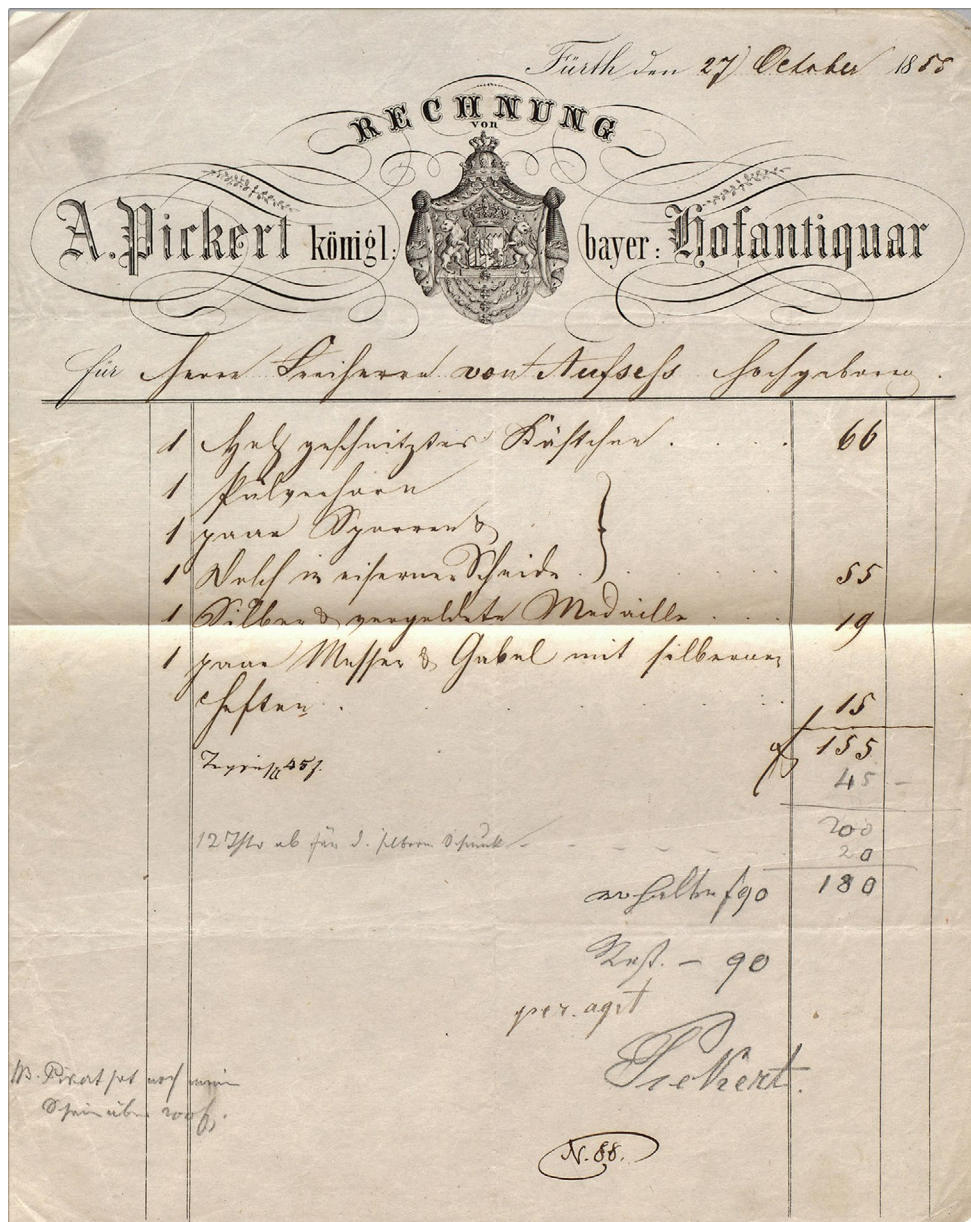 Fürth den 27 October 1855
RECHNUNG
von
A. Pickert königl: bayer: Hofantiquar
für Herrn Freiherrn von Aufsess Hochgeboren.
1 Holz geschnitztes Kästchen . . . . 66
1 Pulverhorn
1 paar Sporren &
1 Dolch in eiserner Scheide . . . . 55
1 Silber & vergoldete Medaille . . . 19
1 paar Messer & Gabel mit silbernen
Heften . . . . . 15
f 155
45 f.
45 –
200
ab für d. silbern – – – – 20
erhalten f 90 180
Rest. – 90
per. agit
Pickert.
NB. Pickert hat noch mein
Schein über 200 f.
N. 88.